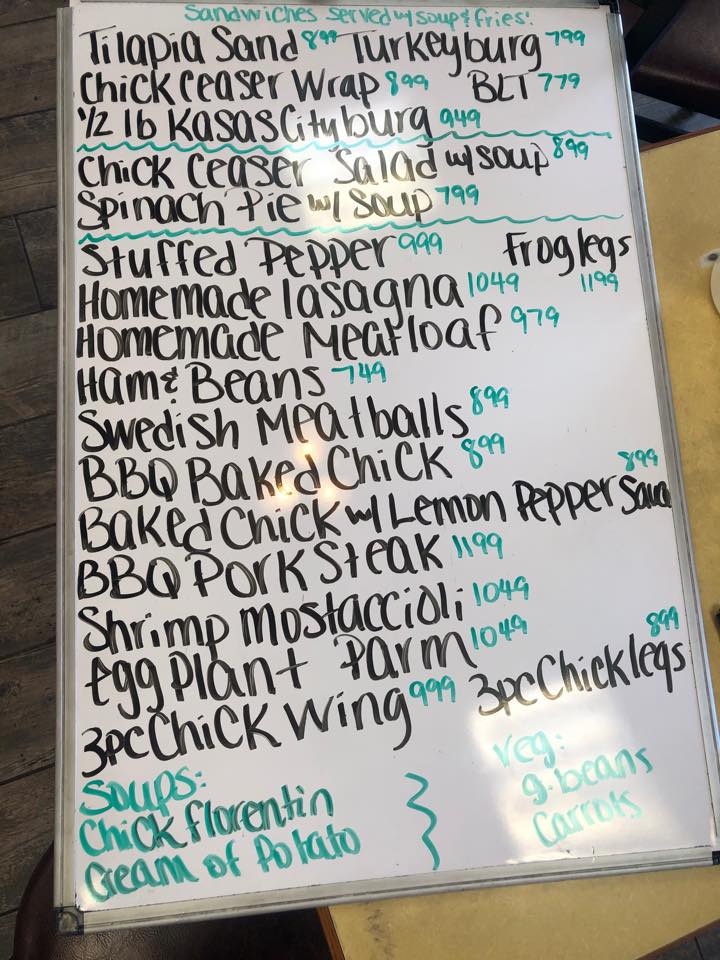 Sandwiches served w/ soup & fries!
Tilapia Sand 899 Turkeyburg 799
Chick Ceaser Wrap 899 BLT 779
1/2 lb Kasas City burg 949
Chick Ceaser Salad w/ soup 899
Spinach Pie w/ Soup 799
Stuffed Pepper 999 Frog legs 1199
Homemade lasagna 1049
Homemade Meatloaf 979
Ham & Beans 749
Swedish Meatballs 899
BBQ Baked Chick 899
Baked Chick w/ Lemon Pepper Sauc 899
BBQ Pork Steak 1199
Shrimp Mostaccioli 1049
Egg Plant Parm 1049
3pc Chick Wing 999 3pc Chick legs 899
Soups:
Chick florentin
Cream of Potato
Veg:
g. beans
Carrots